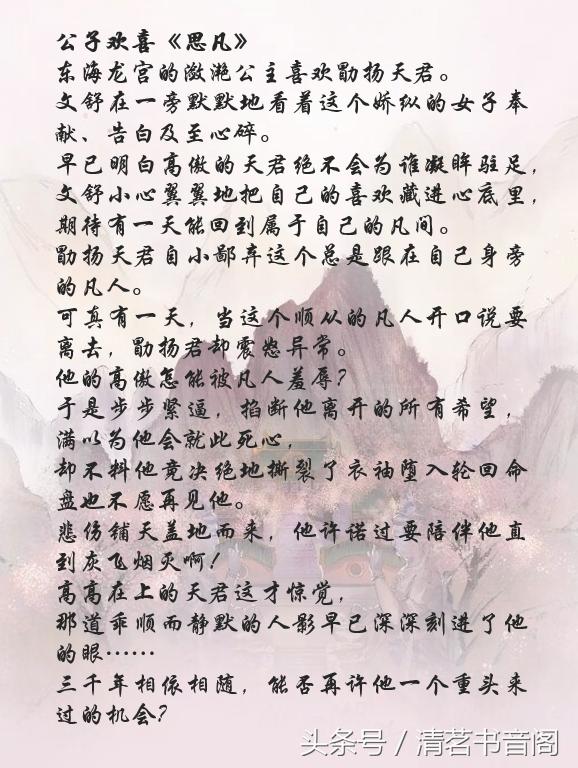 公子欢喜《思凡》
东海龙宫的潋滟公主喜欢勖扬天君。
文舒在一旁默默地看着这个娇纵的女子奉
献、告白及至心碎。
早已明白高傲的天君绝不会为谁凝眸驻足，
文舒小心翼翼地把自己的喜欢藏进心底里，
期待有一天能回到属于自己的凡间。
勖扬天君自小鄙弃这个总是跟在自己身旁
的凡人。
可真有一天，当这个顺从的凡人开口说要
离去，勖扬君却震怒异常。
他的高傲怎能被凡人羞辱？
于是步步紧逼，掐断他离开的所有希望，
满以为他会就此死心，
却不料他竟决绝地撕裂了衣袖堕入轮回命
盘也不愿再见他。
悲伤铺天盖地而来，他许诺过要陪伴他直
到灰飞烟灭啊！
高高在上的天君这才惊觉，
那道乖顺而静默的人影早已深深刻进了他
的眼……
三千年相依相随，能否再许他一个重头来
过的机会？
头条号 / 清茗书音阁